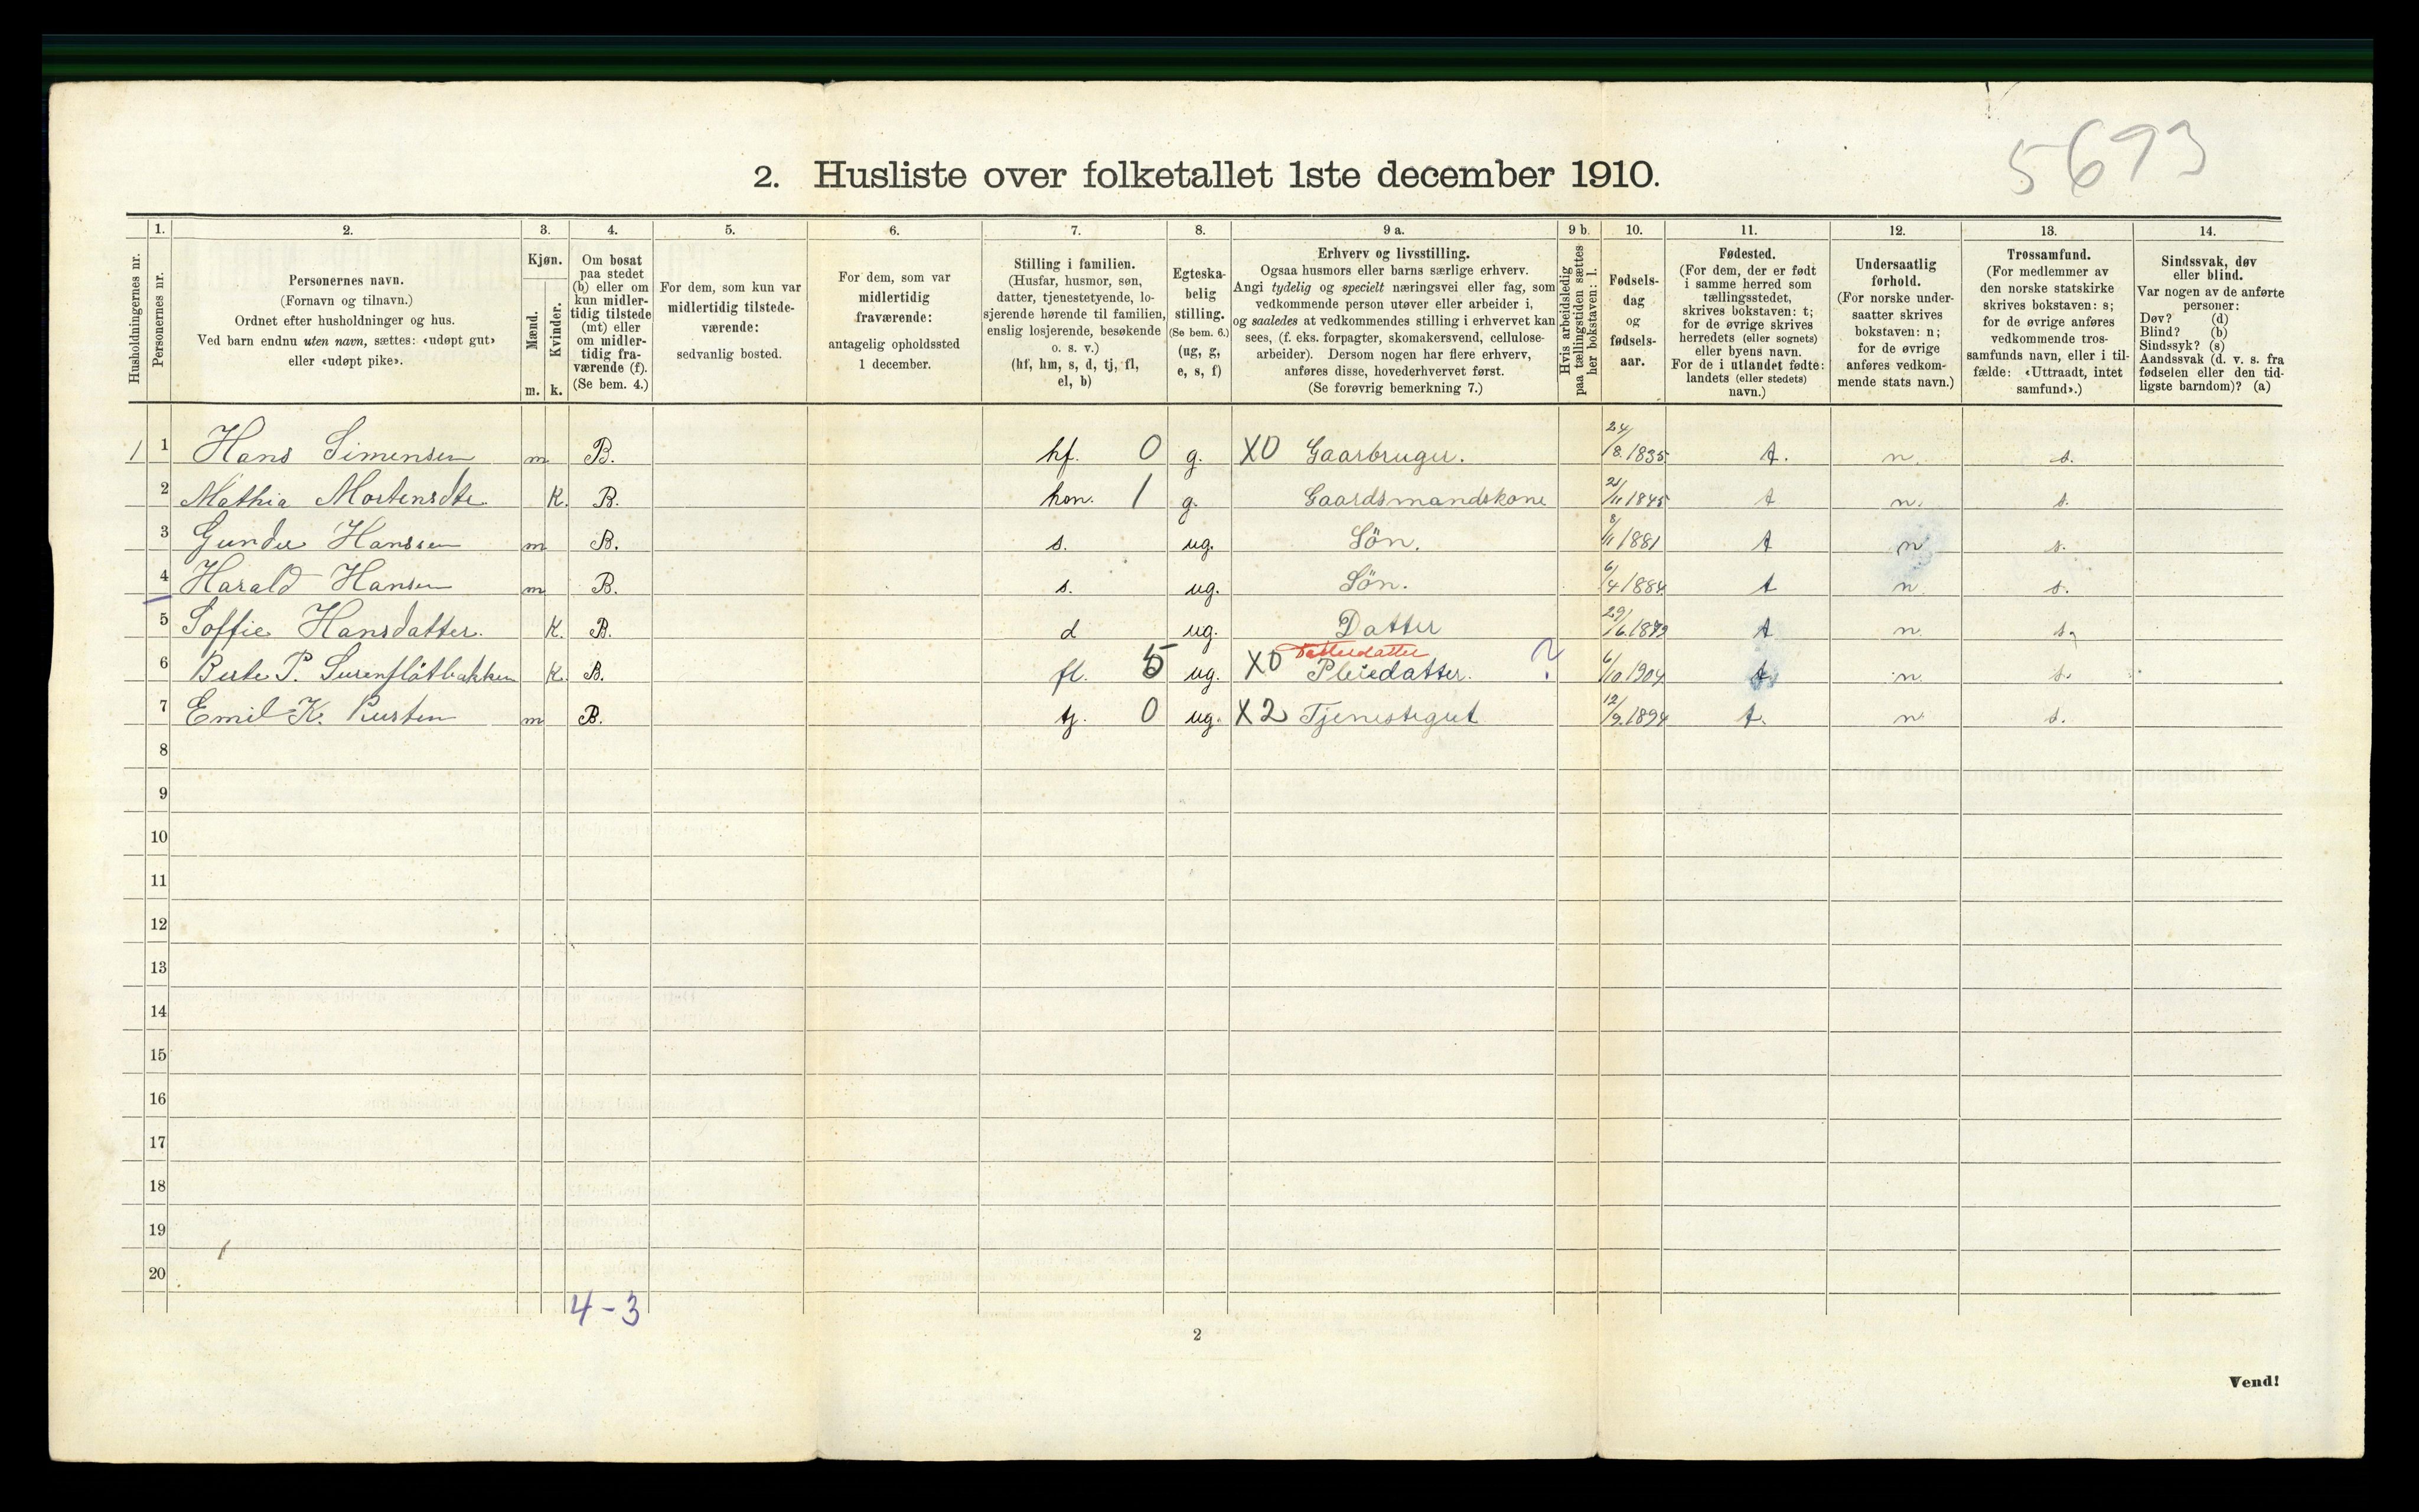 5693
2. Husliste over folketallet 1ste december 1910.
Husholdningernes nr.
1.
Personernes nr.
2.
Personernes navn.
(Fornavn og tilnavn.)
Ordnet efter husholdninger og hus.
Ved barn endnu uten navn, sættes: «udøpt gut»
eller «udøpt pike».
3.
Kjøn.
Mænd.
m.
Kvinder.
k.
4.
Om bosat
paa stedet
(b) eller om
kun midler-
tidig tilstede
(mt) eller
om midler-
tidig fra-
værende (f).
(Se bem. 4.)
5.
For dem, som kun var
midlertidig tilstede-
værende:
sedvanlig bosted.
6.
For dem, som var
midlertidig
fraværende:
antagelig opholdssted
1 december.
7.
Stilling i familien.
(Husfar, husmor, søn,
datter, tjenestetyende, lo-
sjerende hørende til familien,
enslig losjerende, besøkende
o. s. v.)
(hf, hm, s, d, tj, fl,
el, b)
8.
Egteska-
belig
stilling.
(Se bem. 6.)
(ug, g,
e, s, f)
9 a.
Erhverv og livsstilling.
Ogsaa husmors eller barns særlige erhverv.
Angi tydelig og specielt næringsvei eller fag, som
vedkommende person utøver eller arbeider i,
og saaledes at vedkommendes stilling i erhvervet kan
sees, (f. eks. forpagter, skomakersvend, cellulose-
arbeider). Dersom nogen har flere erhverv,
anføres disse, hovederhvervet først.
(Se forøvrig bemerkning 7.)
9 b.
Hvis arbeidsledig
paa tællingstiden sættes
her bokstaven: l.
10.
Fødsels-
dag
og
fødsels-
aar.
11.
Fødested.
(For dem, der er født
i samme herred som
tællingsstedet,
skrives bokstaven: t;
for de øvrige skrives
herredets (eller sognets)
eller byens navn.
For de i utlandet fødte:
landets (eller stedets)
navn.)
12.
Undersaatlig
forhold.
(For norske under-
saatter skrives
bokstaven: n;
for de øvrige
anføres vedkom-
mende stats navn.)
13.
Trossamfund.
(For medlemmer av
den norske statskirke
skrives bokstaven: s;
for de øvrige anføres
vedkommende tros-
samfunds navn, eller i til-
fælde: «Uttraadt, intet
samfund».)
14.
Sindssvak, døv
eller blind.
Var nogen av de anførte
personer:
Døv? (d)
Blind? (b)
Sindssyk? (s)
Aandssvak (d. v. s. fra
fødselen eller den tid-
ligste barndom)? (a)
1 1 Hans Simensen m B. hf. 0 g. X0 Gaarbruger. 24/8.1835 t. n. s.
2 Mathia Mortensdte. K. B. hm. 1 g. Gaardsmandskone 21/11 1845 t n. s.
3 Gunder Hanssen m B. s. ug. Søn. 8/11 1881 t n s.
4 Harald Hansen m B. s. ug. Søn. 6/4 1884 t n s.
5 Soffie Hansdatter. K. B. d ug. Datter 29/6.1879 t n. s.
Datterdatter
6 Berte P. Surenflötbakken K. B. fl. 5 ug. X0 Pleiedatter. ? 6/10.1904 t. n. s.
7 Emil K. Rusten m B. tj. 0 ug. X2 Tjenestegut 12/9.1894 t. n s.
8
9
10
11
12
13
14
15
16
17
18
19
20
4-3
2
Vend!